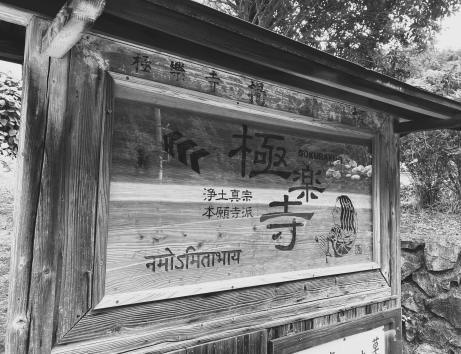 極樂寺掲
GOKURAKU
極楽寺
浄土真宗
本願寺派
नमोऽमिताभाय